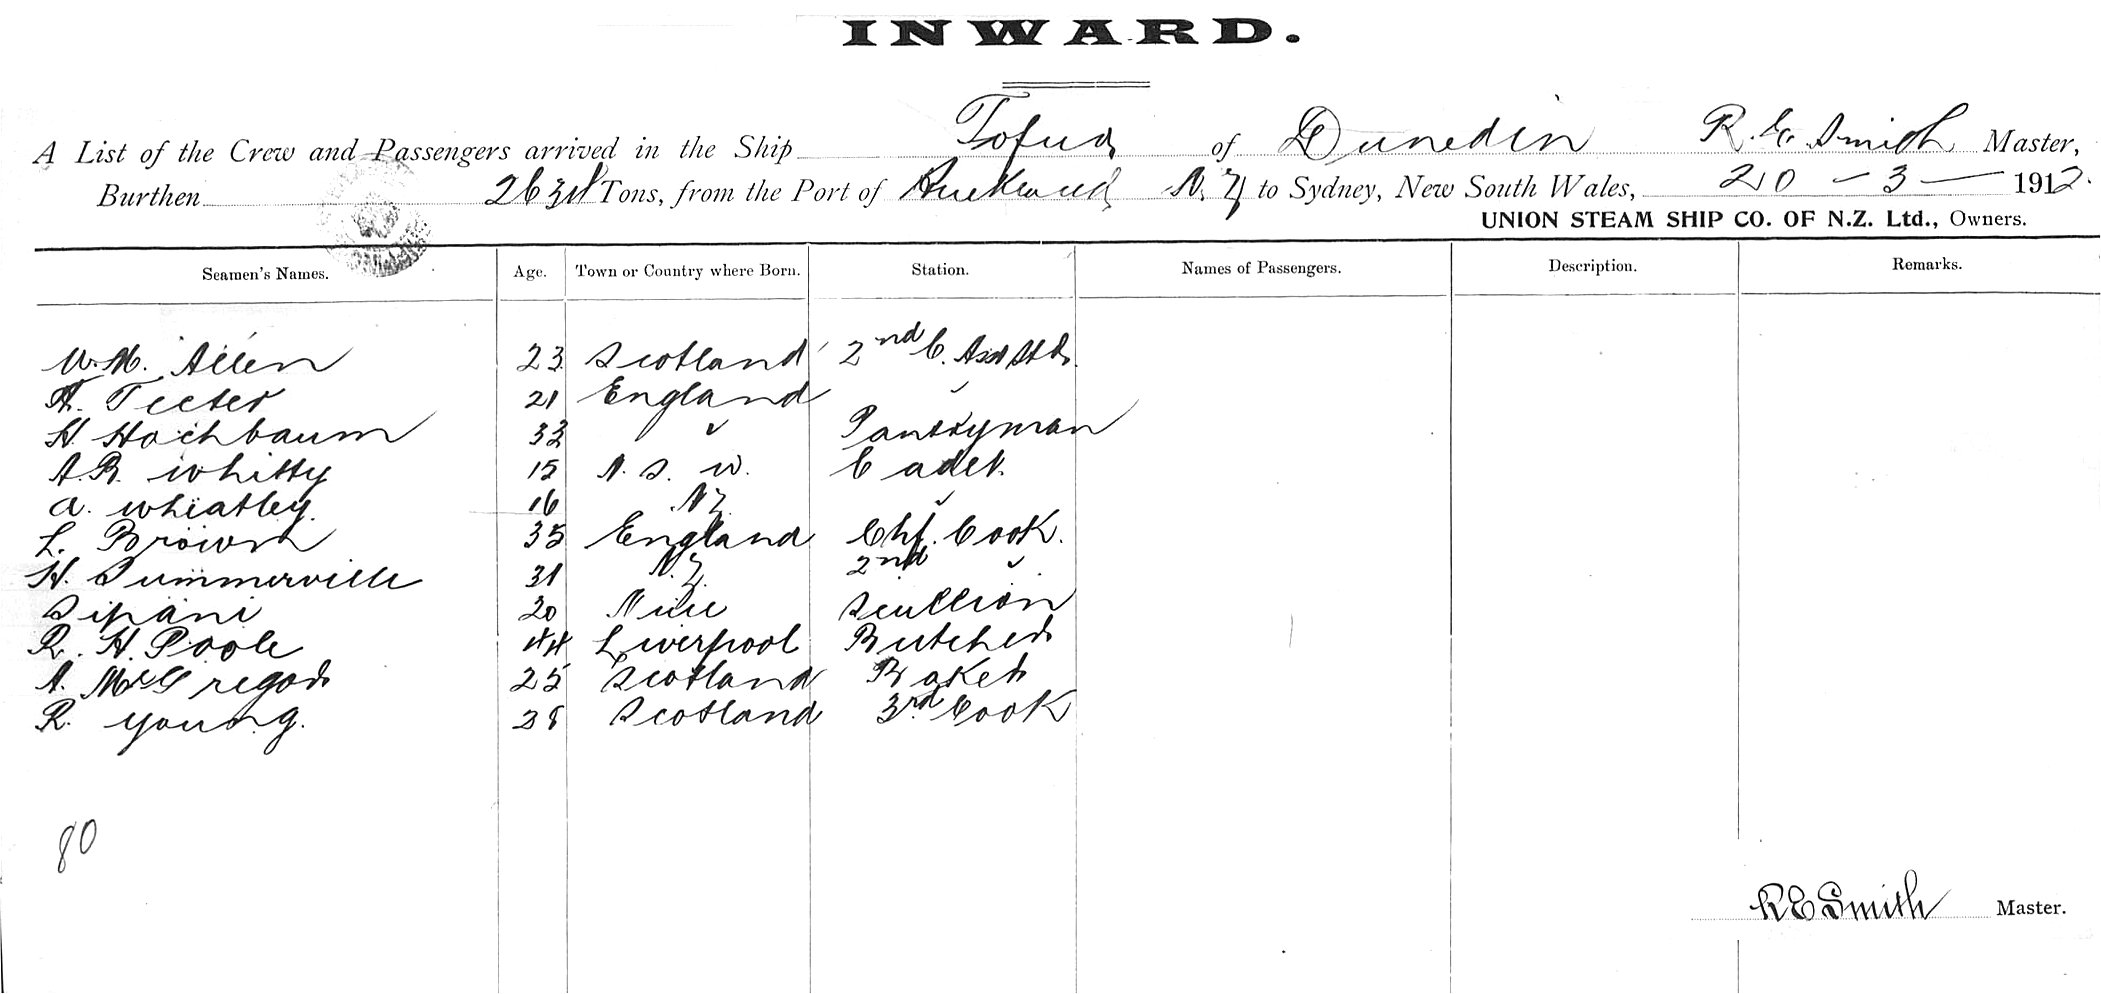 INWARD.
A List of the Crew and Passengers arrived in the Ship Tofua of Dunedin R. E. Smith Master,
Burthen Tons, from the Port of Auckland N. Z to Sydney, New South Wales, 20 - 3 - 1912.
UNION STEAM SHIP CO. OF N.Z. Ltd., Owners.
Seamen's Names. Age. Town or Country where Born. Station. Names of Passengers. Description. Remarks.
W. M. Allen 23 Scotland 2nd C. Asst Std.
Teeter 21 England "
H. Hochbaum 33 " Pantryman
A. R. Whitty 15 N. S. W. Cadet.
A. Wheatley. 16 N Z. "
L. Brown 35 England Chf. Cook.
H. Summerville 31 N. Z. 2nd "
Sipani 20 Niue Scullion
R. H. Poole 44 Liverpool Butcher
A. McGregor 25 Scotland Baker
R. Young. 28 Scotland 3rd Cook
80
R E Smith Master.